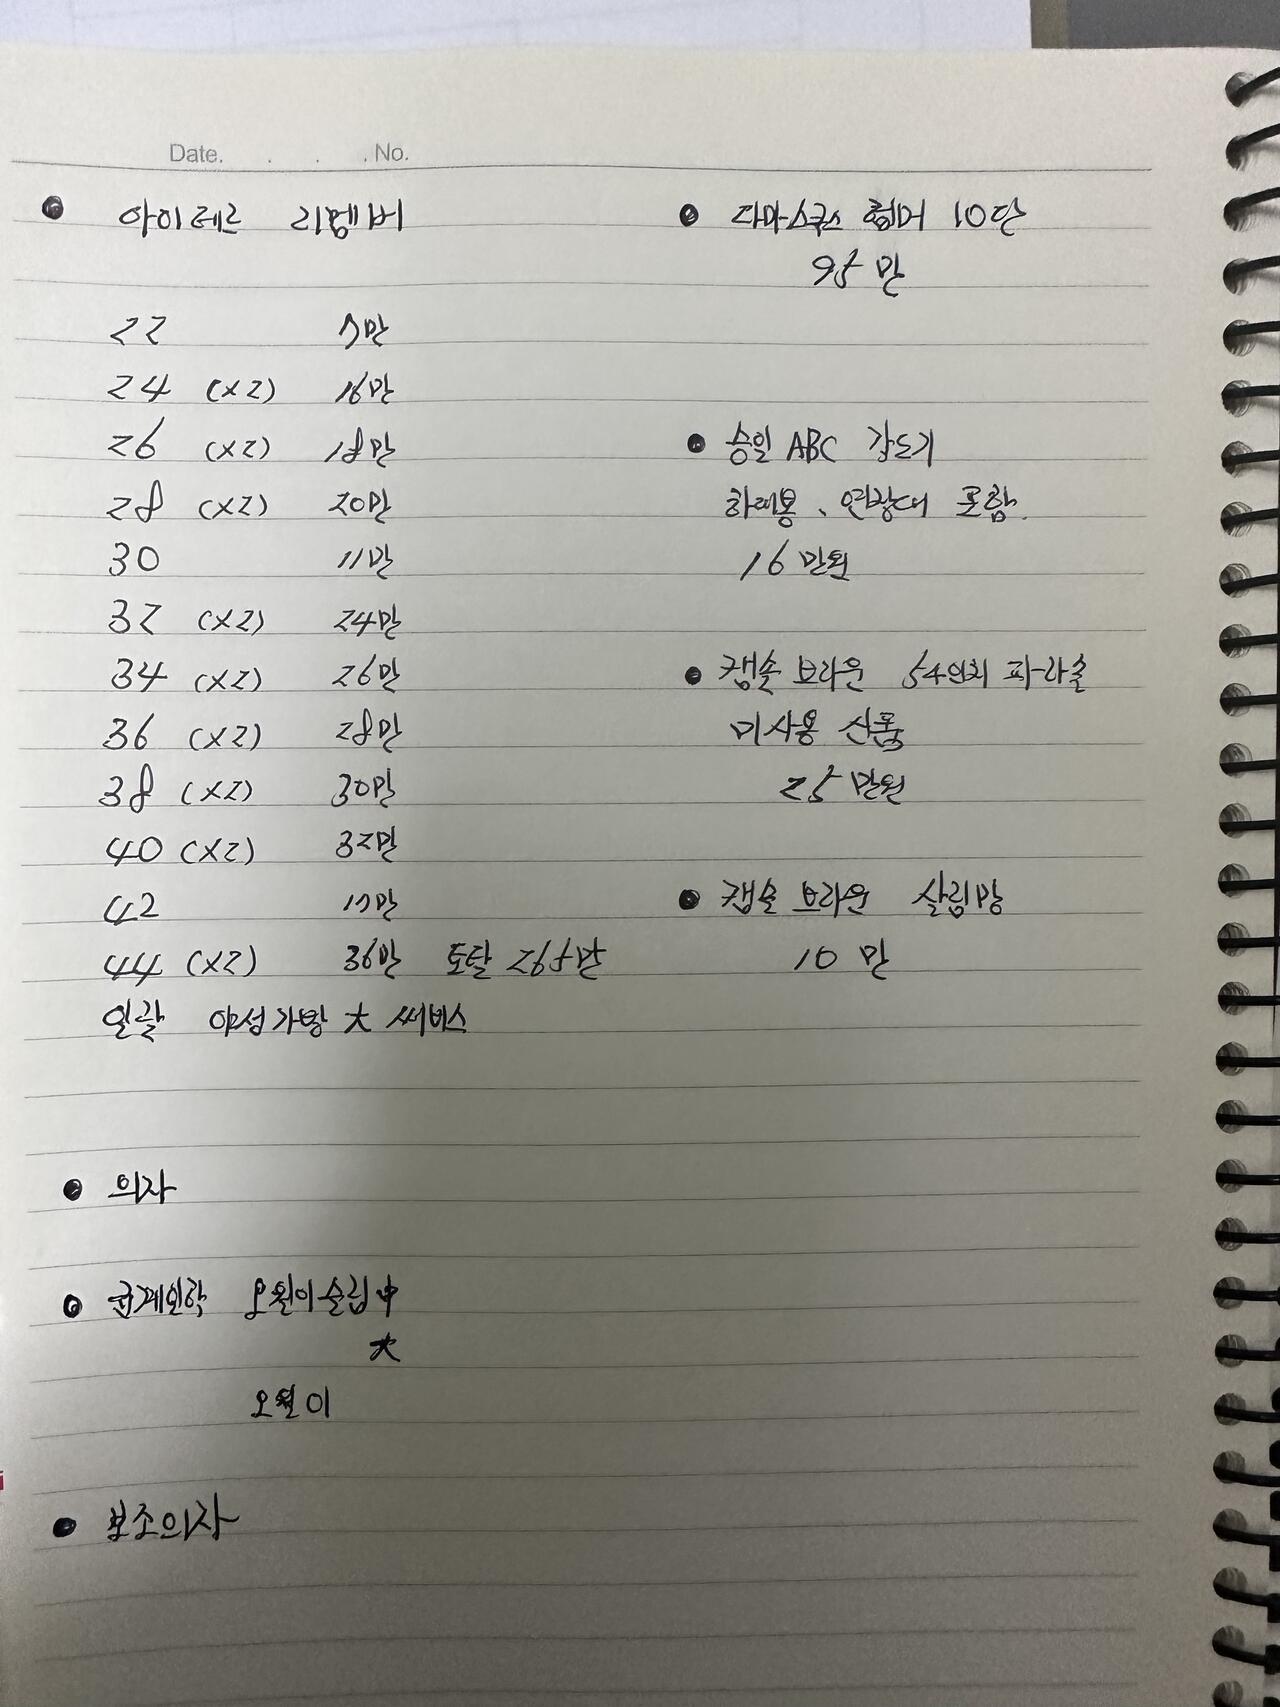 Date. . . . No.
● 아이테르 리멤버
22 7만
24 (x2) 16만
26 (x2) 18만
28 (x2) 20만
30 11만
32 (x2) 24만
34 (x2) 26만
36 (x2) 28만
38 (x2) 30만
40 (x2) 32만
42 17만
44 (x2) 36만 토탈 265만
일괄 야성가방 大 써비스
● 의자
● 군계일학 오월이슬림 中
大
오월이
● 보조의자
● 다마스쿠스 험머 10단
95만
● 승일 ABC 갑도기
하데용、연장대 포함.
16만원
● 캡슐 브라운 54인치 파라솔
미사용 신품
25만원
● 캡슐 브라운 살림망
10만